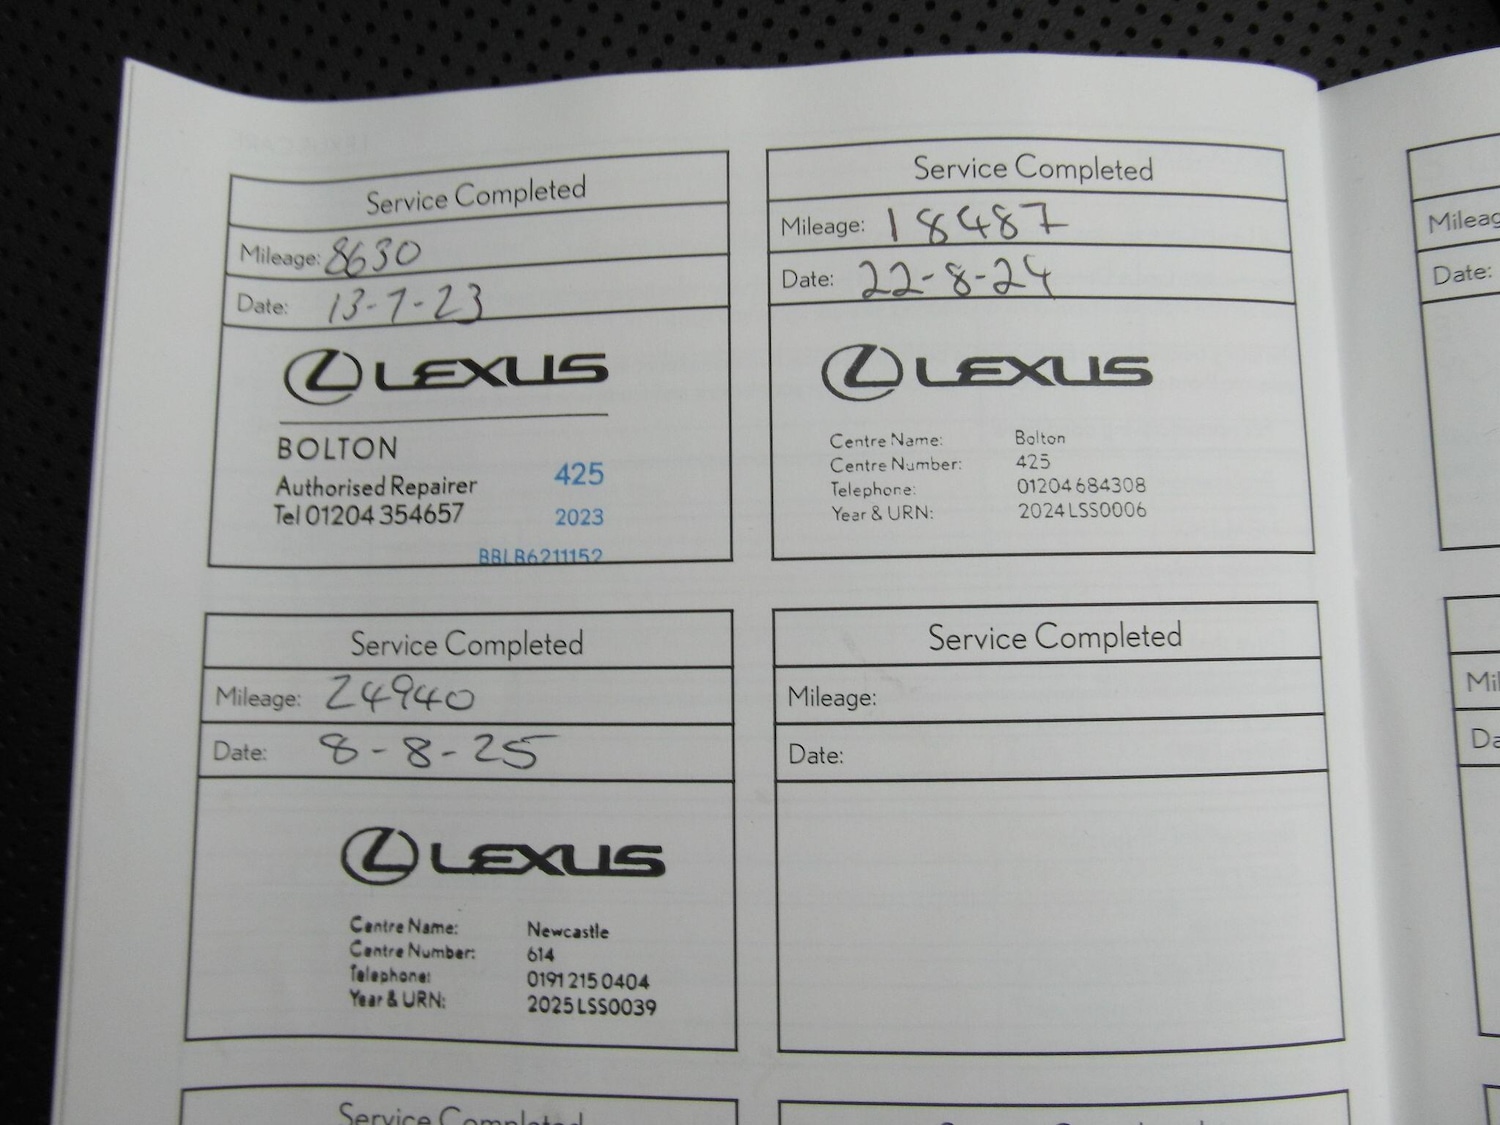 Service Completed
Mileage: 8630
Date: 13-7-23
LEXUS
BOLTON
Authorised Repairer 425
Tel 01204 354657 2023
BBLB6211152
Service Completed
Mileage: 18487
Date: 22-8-24
LEXUS
Centre Name: Bolton
Centre Number: 425
Telephone: 01204 684308
Year & URN: 2024 LSS0006
Service Completed
Mileage: 24940
Date: 8-8-25
LEXUS
Centre Name: Newcastle
Centre Number: 614
Telephone: 0191 215 0404
Year & URN: 2025 LSS0039
Service Completed
Mileage:
Date:
Service Completed
Mileag
Date:
Mil
Da